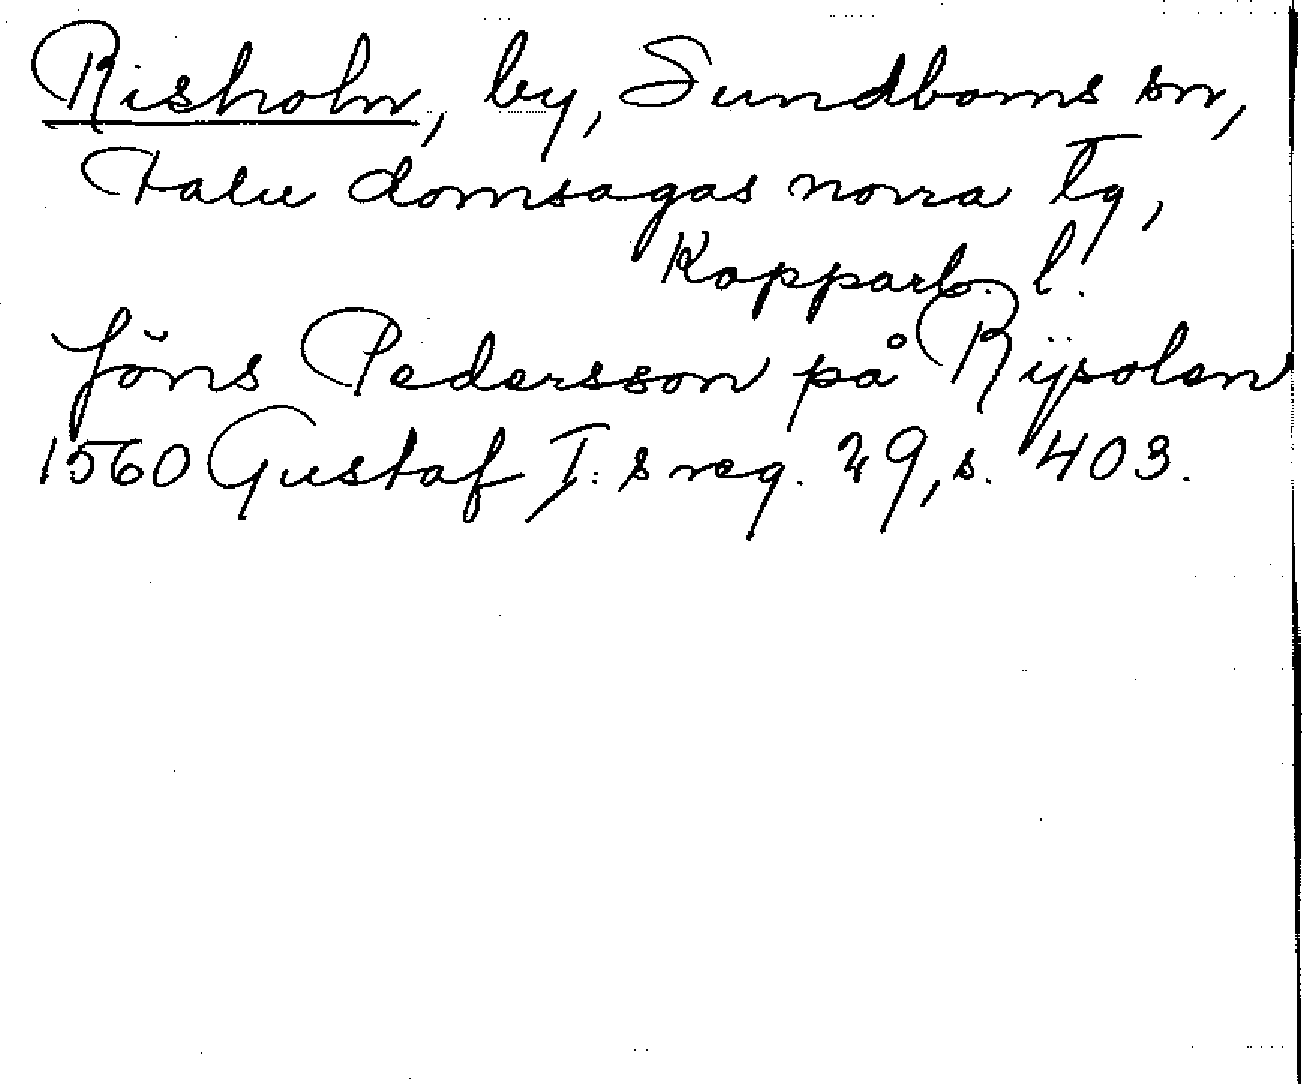 Risholn, by, Sundborns sn,
Falu domsagas norra tg,
Kopparb. l.
Jöns Pedersson på Rijsolen
1560 Gustaf I:s reg. 29, s. 403.